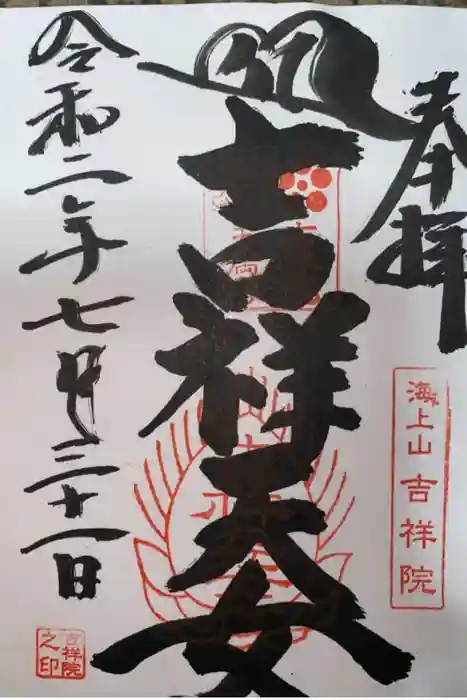 奉拝
海上山 吉祥院
吉祥天女
令和二年七月三十一日
吉祥院
之印